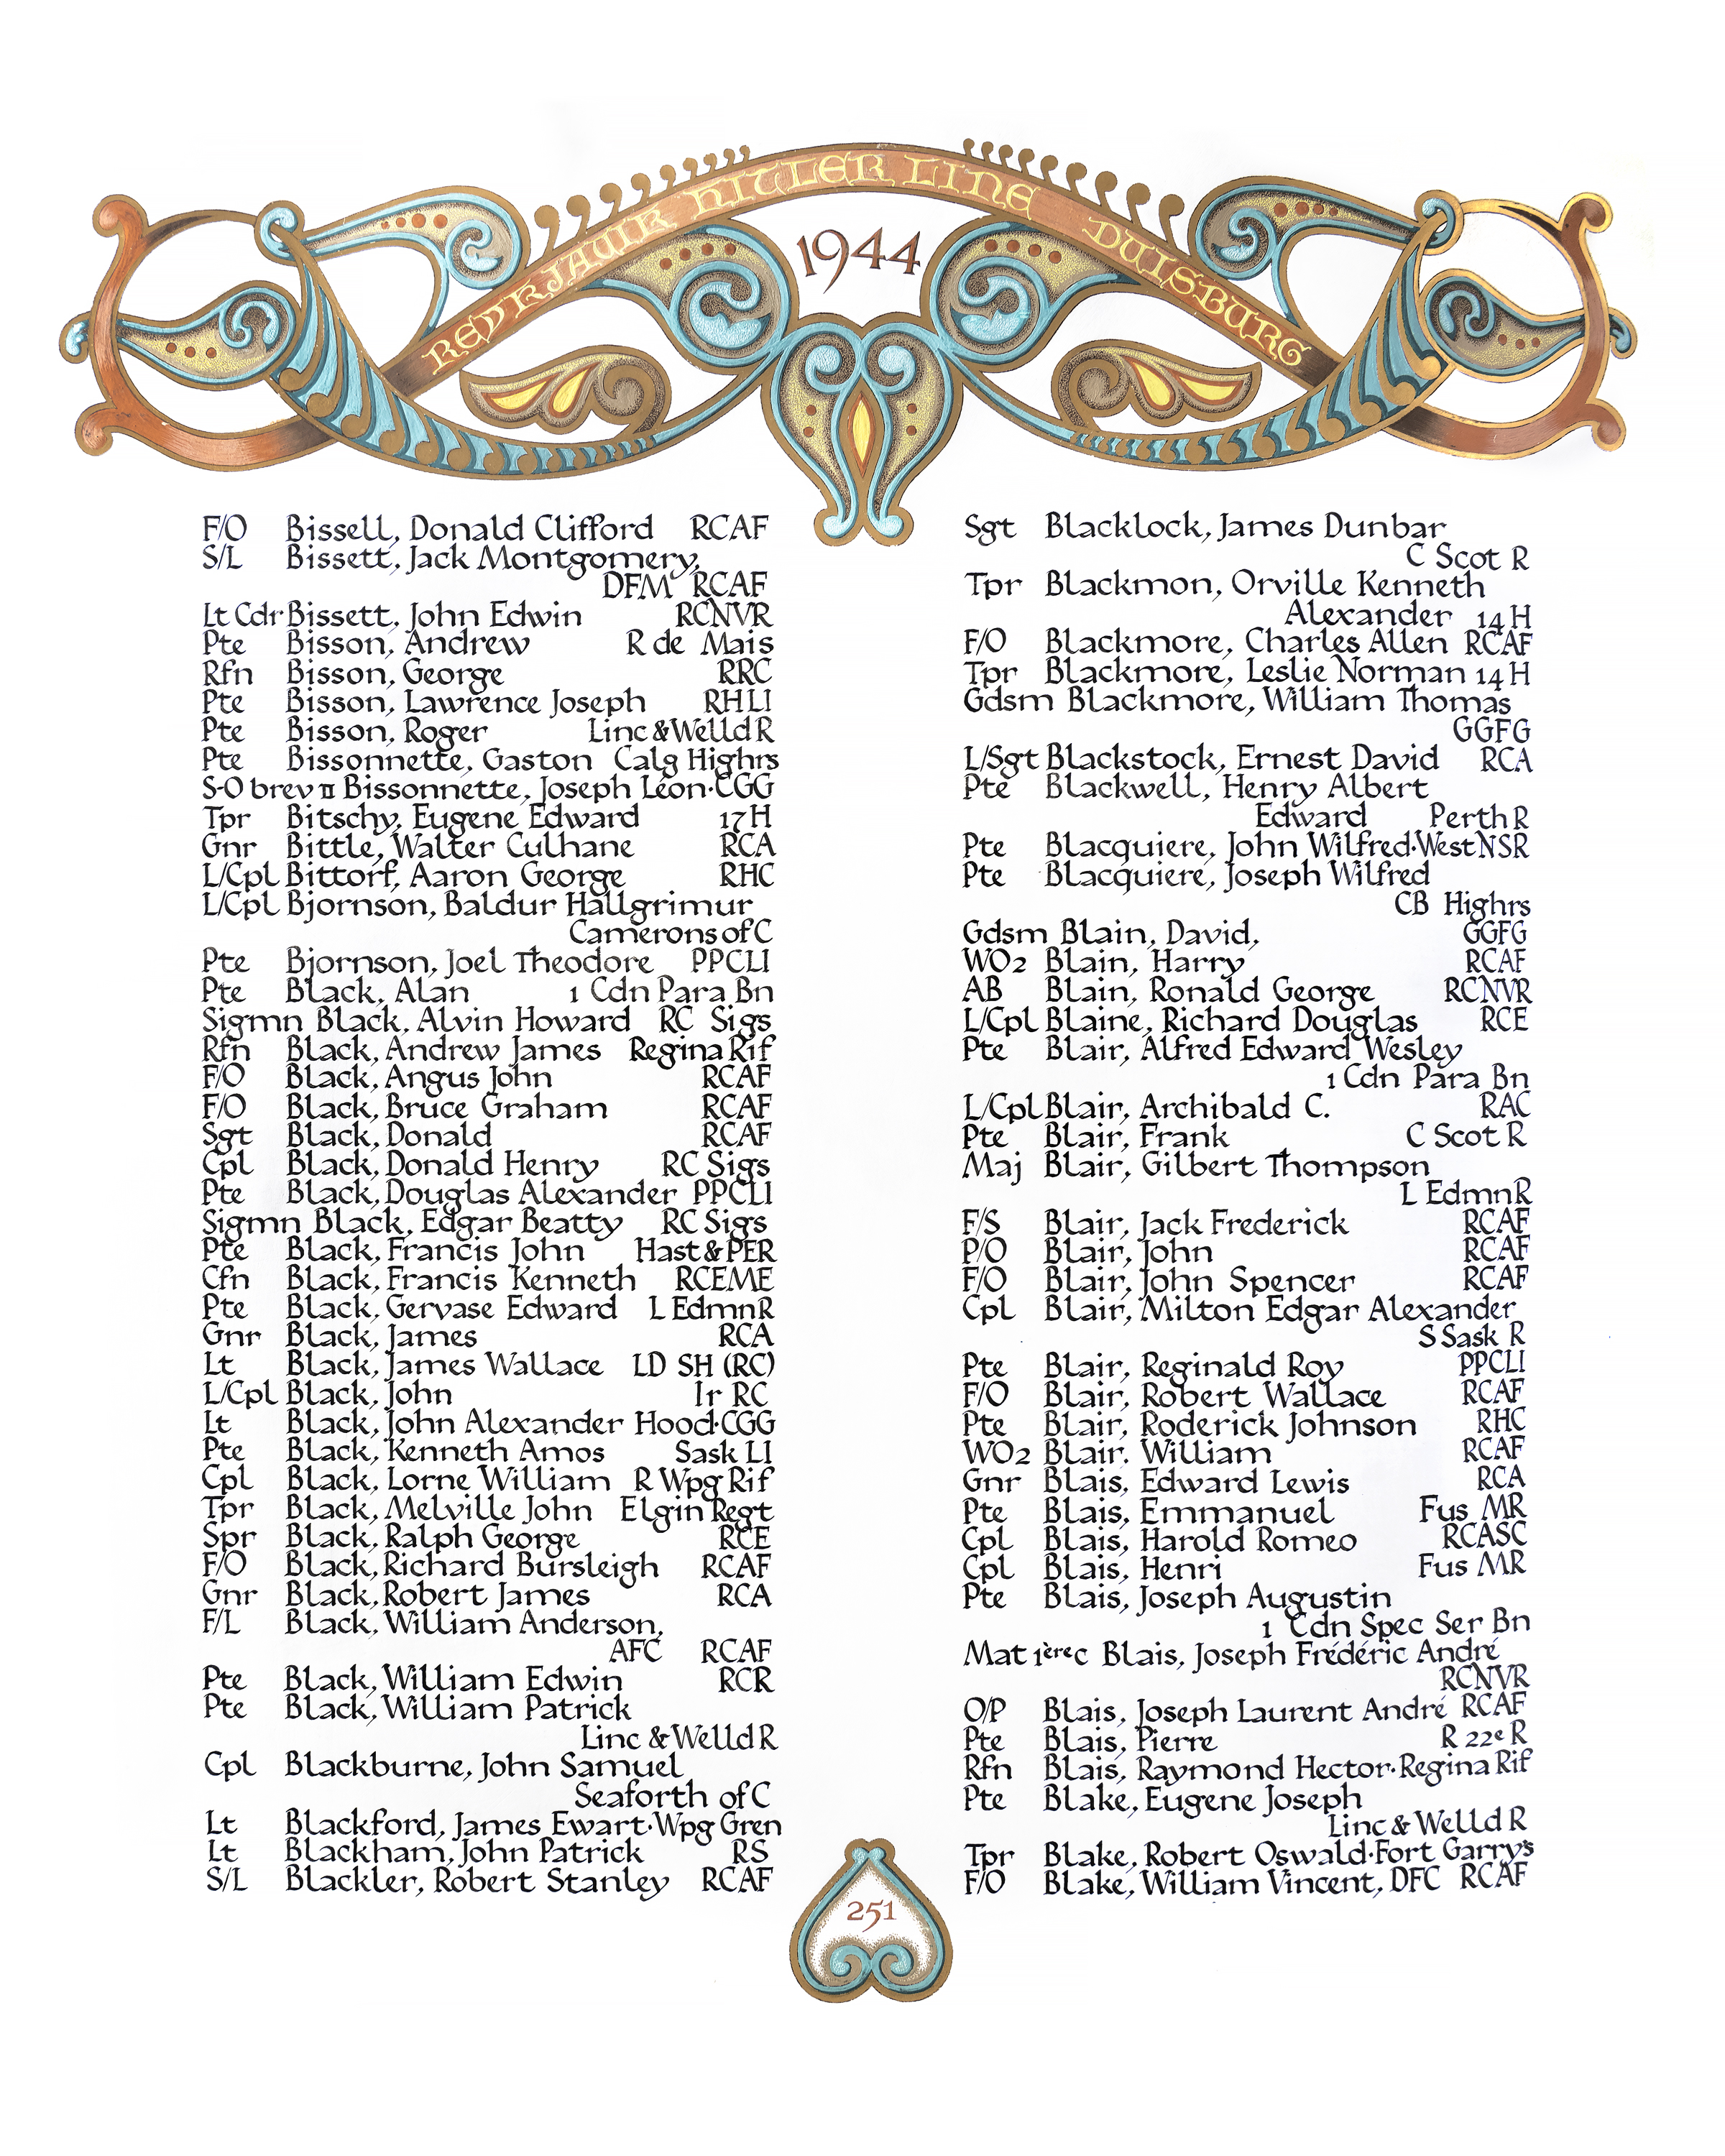 REYKJAVIK HITLER LINE DUISBURG
1944
F/O Bissell, Donald Clifford RCAF
S/L Bissett, Jack Montgomery,
DFM RCAF
Lt Cdr Bissett, John Edwin RCNVR
Pte Bisson, Andrew R de Mais
Rfn Bisson, George RRC
Pte Bisson, Lawrence Joseph RHLI
Pte Bisson, Roger Linc & Welld R
Pte Bissonnette, Gaston Calg Highrs
S-O brev II Bissonnette, Joseph Léon·CGG
Tpr Bitschy, Eugene Edward 17 H
Gnr Bittle, Walter Culhane RCA
L/Cpl Bittorf, Aaron George RHC
L/Cpl Bjornson, Baldur Hallgrimur
Camerons of C
Pte Bjornson, Joel Theodore PPCLI
Pte Black, Alan 1 Cdn Para Bn
Sigmn Black, Alvin Howard RC Sigs
Rfn Black, Andrew James Regina Rif
F/O Black, Angus John RCAF
F/O Black, Bruce Graham RCAF
Sgt Black, Donald RCAF
Cpl Black, Donald Henry RC Sigs
Pte Black, Douglas Alexander PPCLI
Sigmn Black, Edgar Beatty RC Sigs
Pte Black, Francis John Hast & PER
Cfn Black, Francis Kenneth RCEME
Pte Black, Gervase Edward L Edmn R
Gnr Black, James RCA
Lt Black, James Wallace LD SH (RC)
L/Cpl Black, John Ir RC
Lt Black, John Alexander Hood·CGG
Pte Black, Kenneth Amos Sask LI
Cpl Black, Lorne William R Wpg Rif
Tpr Black, Melville John Elgin Regt
Spr Black, Ralph George RCE
F/O Black, Richard Bursleigh RCAF
Gnr Black, Robert James RCA
F/L Black, William Anderson,
AFC RCAF
Pte Black, William Edwin RCR
Pte Black, William Patrick
Linc & Welld R
Cpl Blackburne, John Samuel
Seaforth of C
Lt Blackford, James Ewart·Wpg Gren
Lt Blackham, John Patrick RS
S/L Blackler, Robert Stanley RCAF
Sgt Blacklock, James Dunbar
C Scot R
Tpr Blackmon, Orville Kenneth
Alexander 14 H
F/O Blackmore, Charles Allen RCAF
Tpr Blackmore, Leslie Norman 14 H
Gdsm Blackmore, William Thomas
GGFG
L/Sgt Blackstock, Ernest David RCA
Pte Blackwell, Henry Albert
Edward Perth R
Pte Blacquiere, John Wilfred·West NSR
Pte Blacquiere, Joseph Wilfred
CB Highrs
Gdsm Blain, David, GGFG
WO2 Blain, Harry RCAF
AB Blain, Ronald George RCNVR
L/Cpl Blaine, Richard Douglas RCE
Pte Blair, Alfred Edward Wesley
1 Cdn Para Bn
L/Cpl Blair, Archibald C. RAC
Pte Blair, Frank C Scot R
Maj Blair, Gilbert Thompson
L Edmn R
F/S Blair, Jack Frederick RCAF
P/O Blair, John RCAF
F/O Blair, John Spencer RCAF
Cpl Blair, Milton Edgar Alexander
S Sask R
Pte Blair, Reginald Roy PPCLI
F/O Blair, Robert Wallace RCAF
Pte Blair, Roderick Johnson RHC
WO2 Blair. William RCAF
Gnr Blais, Edward Lewis RCA
Pte Blais, Emmanuel Fus MR
Cpl Blais, Harold Romeo RCASC
Cpl Blais, Henri Fus MR
Pte Blais, Joseph Augustin
1 Cdn Spec Ser Bn
Mat 1èrec Blais, Joseph Frédéric André
RCNVR
O/P Blais, Joseph Laurent André RCAF
Pte Blais, Pierre R 22e R
Rfn Blais, Raymond Hector·Regina Rif
Pte Blake, Eugene Joseph
Linc & Welld R
Tpr Blake, Robert Oswald·Fort Garry's
F/O Blake, William Vincent, DFC RCAF
251